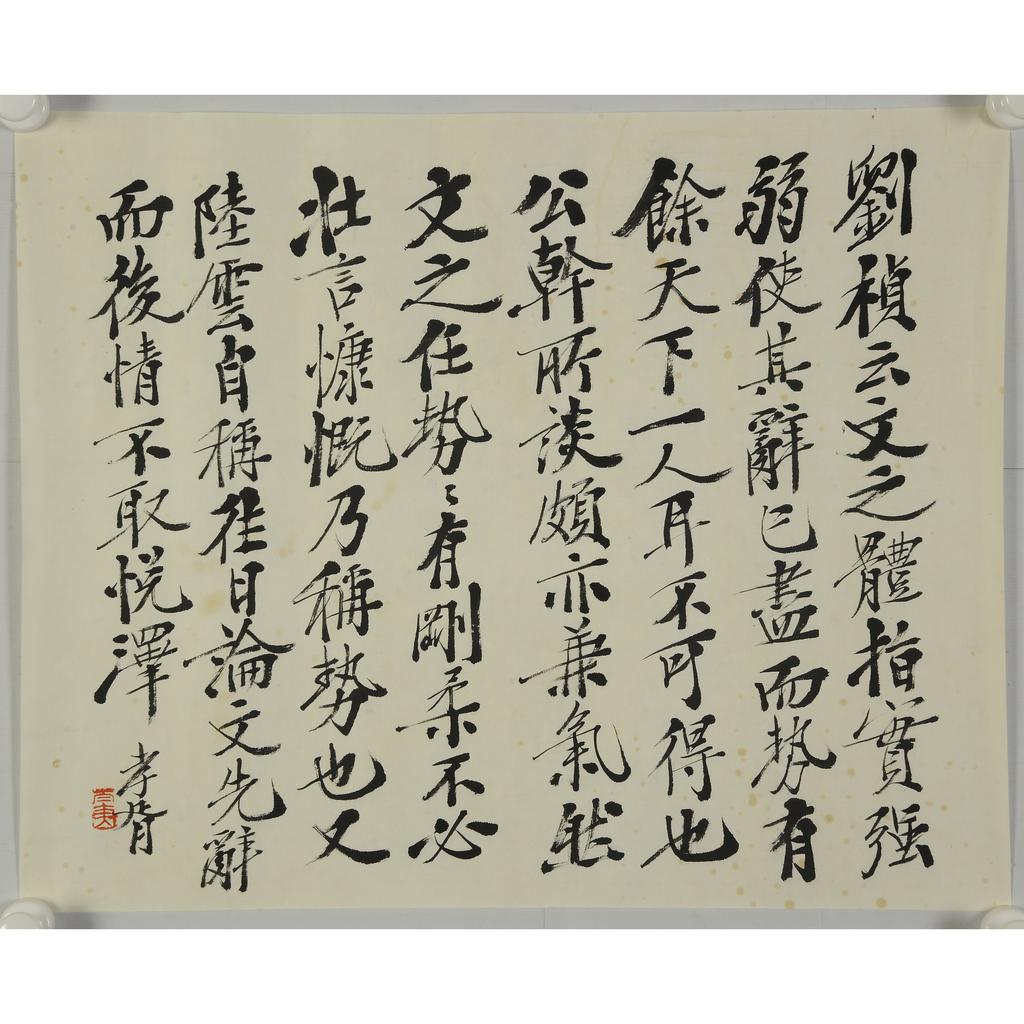 劉楨云文之體指實强
弱使其辭已盡而勢有
餘天下一人耳不可得也
公幹所談頗亦兼氣然
文之任勢〻有剛柔不必
壯言慷慨乃稱勢也又
陸雲自稱往日論文先辭
而後情不取悦澤
孝胥